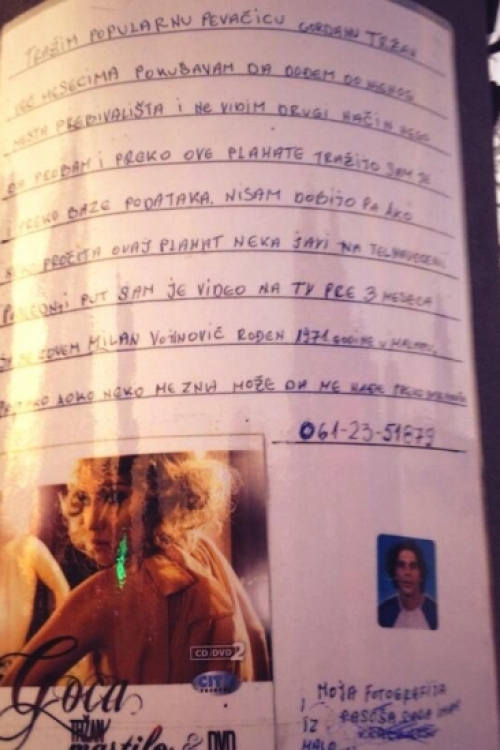 TRAŽIM POPULARNU PEVAČICU GORDANU TRŽAN
VEĆ MESECIMA POKUŠAVAM DA DOĐEM DO NJENOG
MESTA PREBIVALIŠTA I NE VIDIM DRUGI NAČIN NEGO
DA PROBAM I PREKO OVE PLAKATE TRAŽIJO SAM JE
I PREKO BAZE PODATAKA. NISAM DOBIJO PA AKO
NEKO PROČITA OVAJ PLAKAT NEKA JAVI NA TEL NAVEDENI
POSLEDNJI PUT SAM JE VIDEO NA TV PRE 3 MESECA
JA SE ZOVEM MILAN VOJINOVIĆ ROĐEN 1971 GODINE U
NEKO ME ZNA MOŽE DA ME NAĐE
061-23-51879
CD/DVD 2
CITY RECORDS
Goca
TRŽAN
mastilo & DVD
MOJA FOTOGRAFIJA
I IZ PASOŠA SADA IMAM
MALO